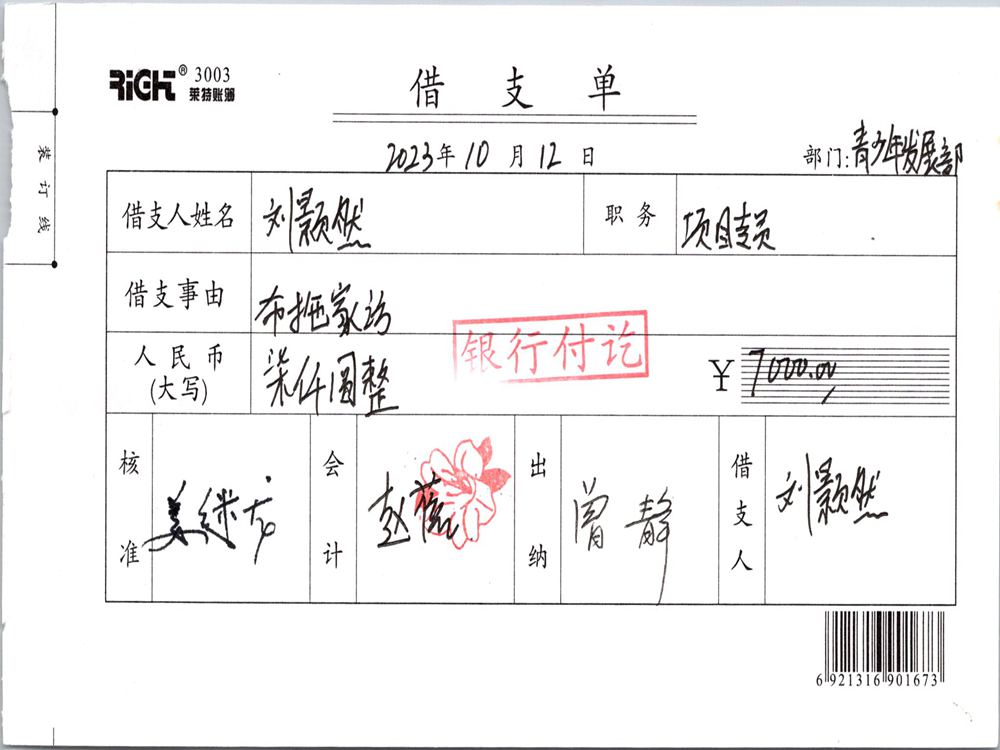 RIGHT® 3003
莱特账簿
借支单
2023年10月12日
部门:青少年发展部
装订线
借支人姓名 刘颢然 职务 项目专员
借支事由 布拖家访
人民币(大写) 柒仟圆整 ¥7000.00
银行付讫
核准 姜继 会计 赵薇 出纳 曾静 借支人 刘颢然
6 921316 901673